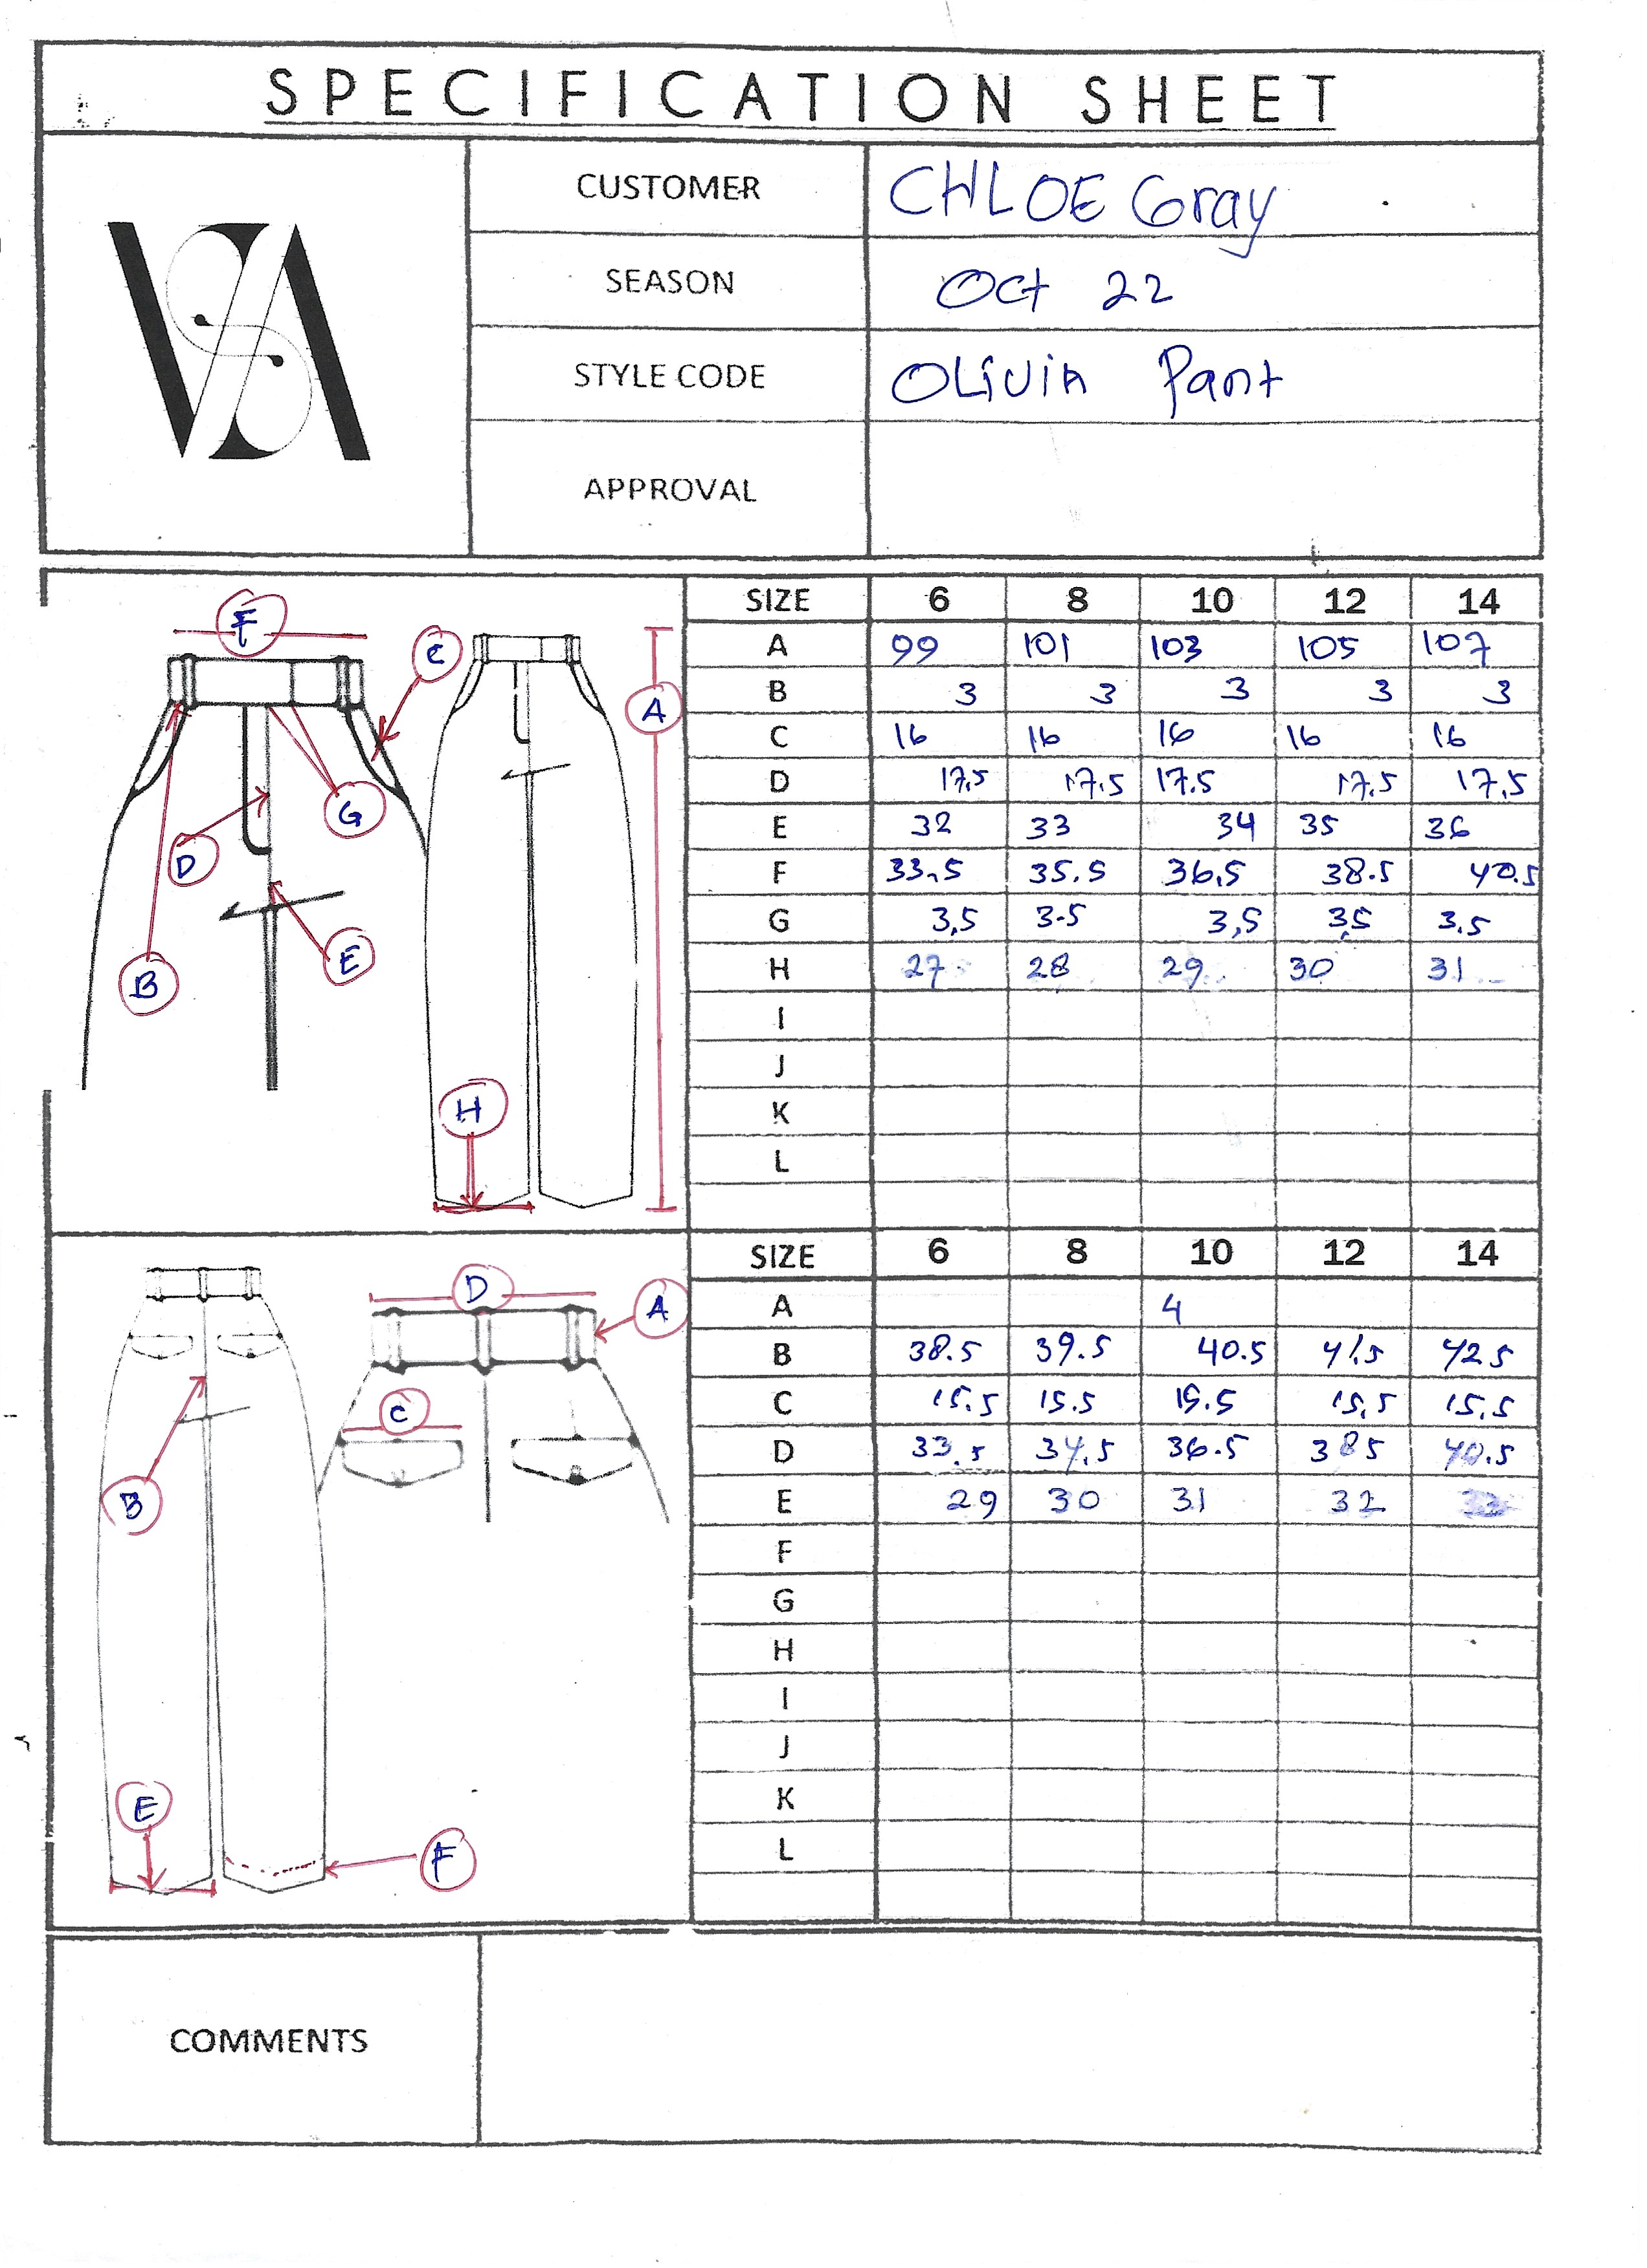 SPECIFICATION SHEET
CUSTOMER CHLOE Gray
SEASON Oct 22
STYLE CODE OLiViA Pant
APPROVAL
SIZE 6 8 10 12 14
A 99 101 103 105 107
B 3 3 3 3 3
C 16 16 16 16 16
D 17.5 17.5 17.5 17.5 17.5
E 32 33 34 35 36
F 33.5 35.5 36.5 38.5 40.5
G 3,5 3.5 3,5 3,5 3.5
H 27 28 29 30 31
I
J
K
L
F
C
A
G
D
E
B
H
SIZE 6 8 10 12 14
A 4
B 38.5 39.5 40.5 41.5 42 5
C 15.5 15.5 15.5 15.5 15.5
D 33.5 34.5 36.5 38 5 40.5
E 29 30 31 32 33
F
G
H
I
J
K
L
D
A
C
B
E
F
COMMENTS